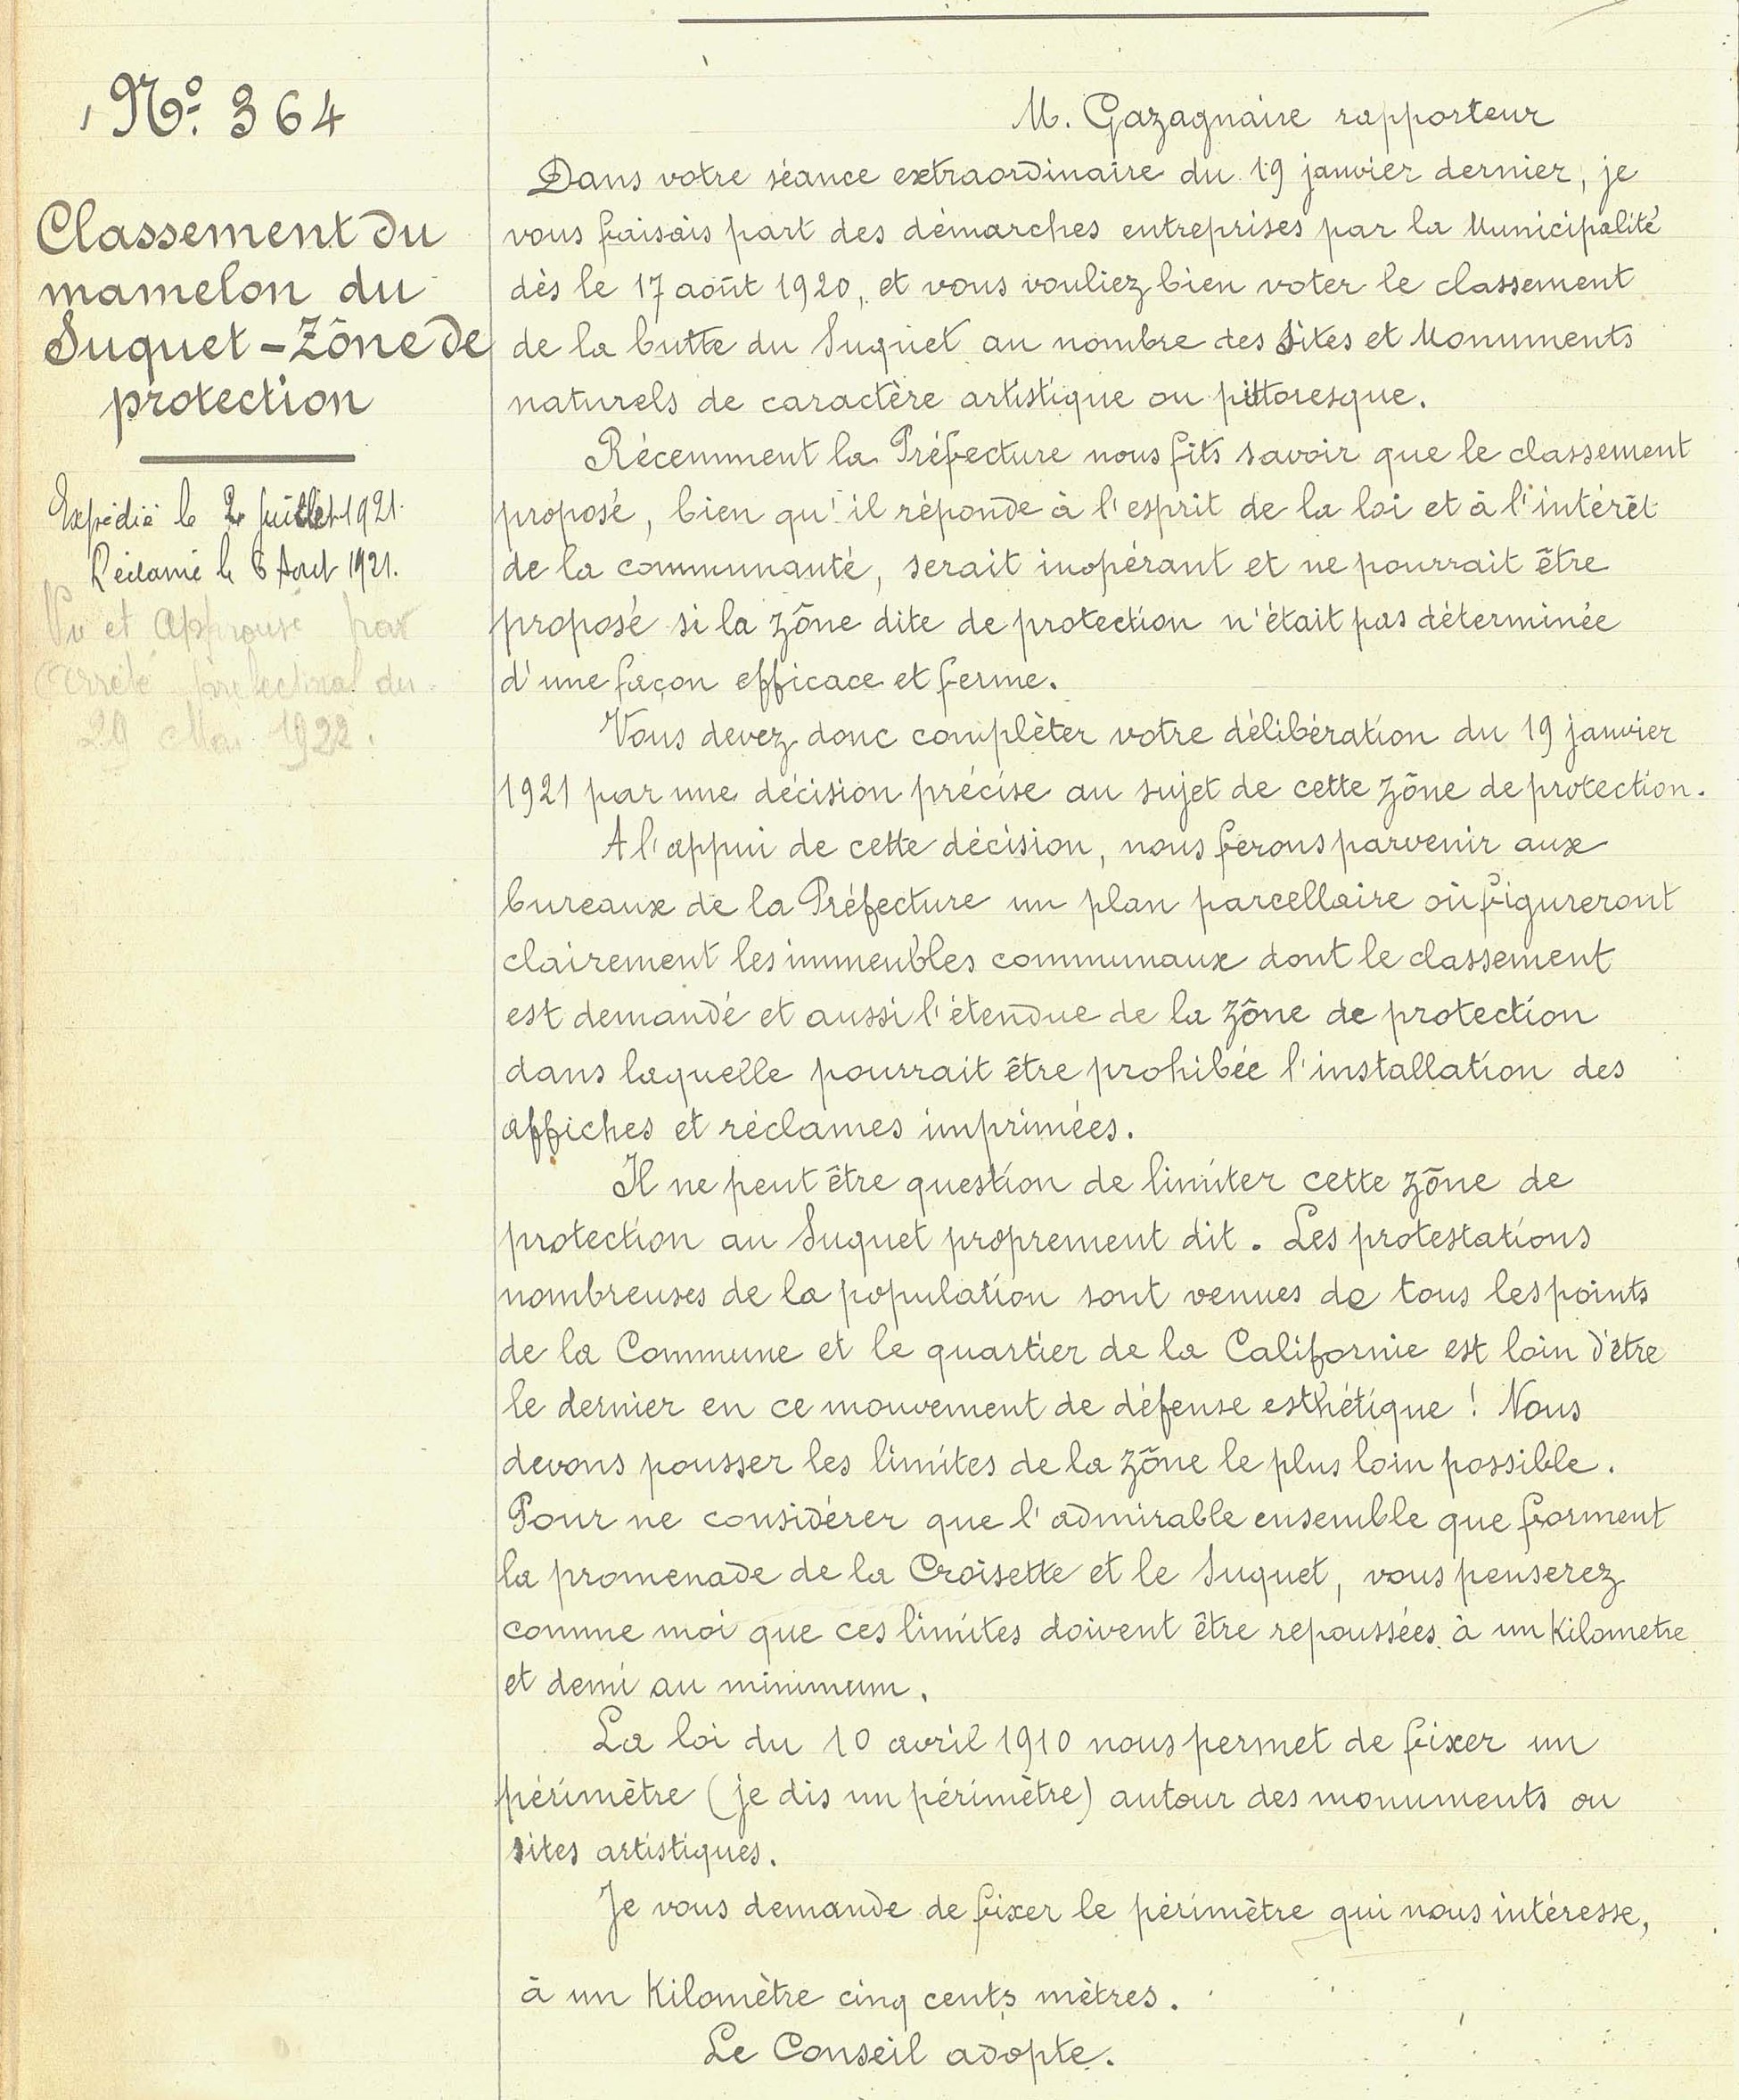 Nº 364
Classement du
mamelon du
Suquet - Zône de
protection
Expédié le 2 Juillet 1921.
Réclamé le 6 Aout 1921.
Vu et Approuvé par
Arrêté préfectoral du
29 Mai 1922.
M. Gazagnaire rapporteur
Dans votre séance extraordinaire du 19 janvier dernier, je
vous faisais part des démarches entreprises par la Municipalité
dès le 17 août 1920, et vous vouliez bien voter le classement
de la butte du Suquet au nombre des Sites et Monuments
naturels de caractère artistique ou pittoresque.
Récemment la Préfecture nous fits savoir que le classement
proposé, bien qu'il réponde à l'esprit de la loi et à l'intérêt
de la communauté, serait inopérant et ne pourrait être
proposé si la zône dite de protection n'était pas déterminée
d'une façon efficace et ferme.
Vous devez donc complèter votre délibération du 19 janvier
1921 par une décision précise au sujet de cette zône de protection.
A l'appui de cette décision, nous ferons parvenir aux
bureaux de la Préfecture un plan parcellaire où figureront
clairement les immeubles communaux dont le classement
est demandé et aussi l'étendue de la zône de protection
dans laquelle pourrait être prohibée l'installation des
affiches et réclames imprimées.
Il ne peut être question de limiter cette zône de
protection au Suquet proprement dit. Les protestations
nombreuses de la population sont venues de tous les points
de la Commune et le quartier de la Californie est loin d'être
le dernier en ce mouvement de défense esthétique ! Nous
devons pousser les limites de la zône le plus loin possible.
Pour ne considérer que l'admirable ensemble que forment
la promenade de la Croisette et le Suquet, vous penserez
comme moi que ces limites doivent être repoussées à un Kilometre
et demi au minimum.
La loi du 10 avril 1910 nous permet de fixer un
périmètre (je dis un périmètre) autour des monuments ou
sites artistiques.
Je vous demande de fixer le périmètre qui nous intéresse,
à un Kilomètre cinq cents mètres.
Le Conseil adopte.